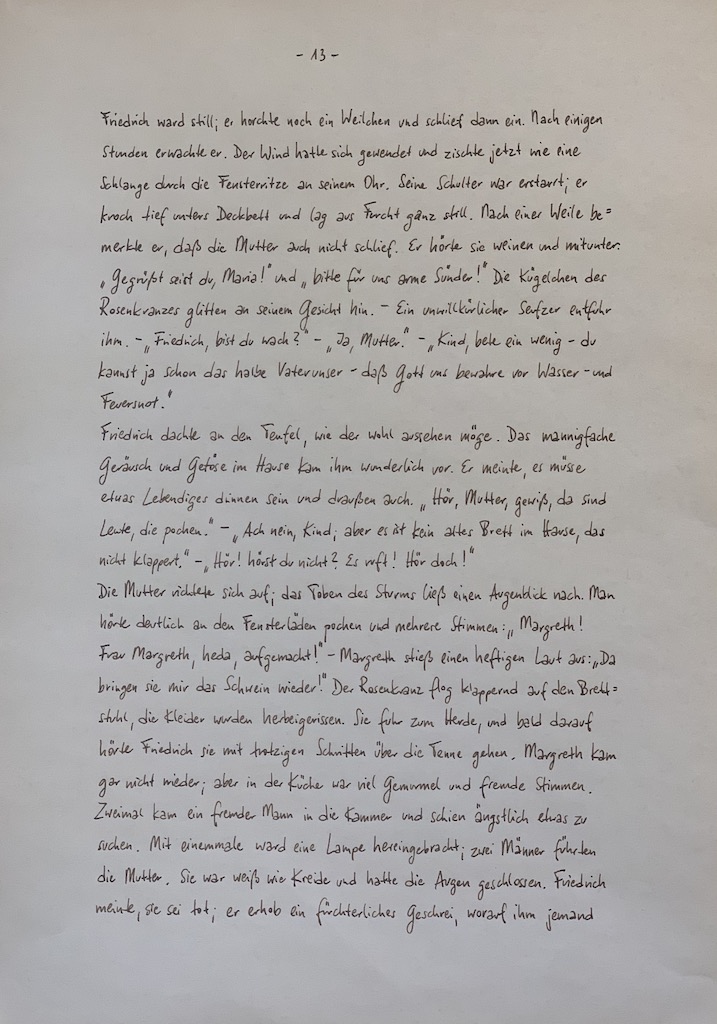 - 13 -
Friedrich ward still; er horchte noch ein Weilchen und schlief dann ein. Nach einigen
Stunden erwachte er. Der Wind hatte sich gewendet und zischte jetzt wie eine
Schlange durch die Fensterritze an seinem Ohr. Seine Schulter war erstarrt; er
kroch tief unters Deckbett und lag aus Furcht ganz still. Nach einer Weile be=
merkte er, daß die Mutter auch nicht schlief. Er hörte sie weinen und mitunter:
„Gegrüßt seist du, Maria!" und „bitte für uns arme Sünder!" Die Kügelchen des
Rosenkranzes glitten an seinem Gesicht hin. – Ein unwillkürlicher Seufzer entfuhr
ihm. – „Friedrich, bist du wach?" – „Ja, Mutter." – „Kind, bete ein wenig – du
kannst ja schon das halbe Vaterunser – daß Gott uns bewahre vor Wasser – und
Feuersnot."
Friedrich dachte an den Teufel, wie der wohl aussehen möge. Das mannigfache
Geräusch und Getöse im Hause kam ihm wunderlich vor. Er meinte, es müsse
etwas Lebendiges drinnen sein und draußen auch. „Hör, Mutter, gewiß, da sind
Leute, die pochen." – „Ach nein, Kind; aber es ist kein altes Brett im Hause, das
nicht klappert." – „Hör! hörst du nicht? Es ruft! Hör doch!"
Die Mutter richtete sich auf; das Toben des Sturms ließ einen Augenblick nach. Man
hörte deutlich an den Fensterläden pochen und mehrere Stimmen: „Margreth!
Frau Margreth, heda, aufgemacht!" – Margreth stieß einen heftigen Laut aus: „Da
bringen sie mir das Schwein wieder!" Der Rosenkranz flog klappernd auf den Brett=
stuhl, die Kleider wurden herbeigerissen. Sie fuhr zum Herde, und bald darauf
hörte Friedrich sie mit trotzigen Schritten über die Tenne gehen. Margreth kam
gar nicht wieder; aber in der Küche war viel Gemurmel und fremde Stimmen.
Zweimal kam ein fremder Mann in die Kammer und schien ängstlich etwas zu
suchen. Mit einemmale ward eine Lampe hereingebracht; zwei Männer führten
die Mutter. Sie war weiß wie Kreide und hatte die Augen geschlossen. Friedrich
meinte, sie sei tot; er erhob ein fürchterliches Geschrei, worauf ihm jemand